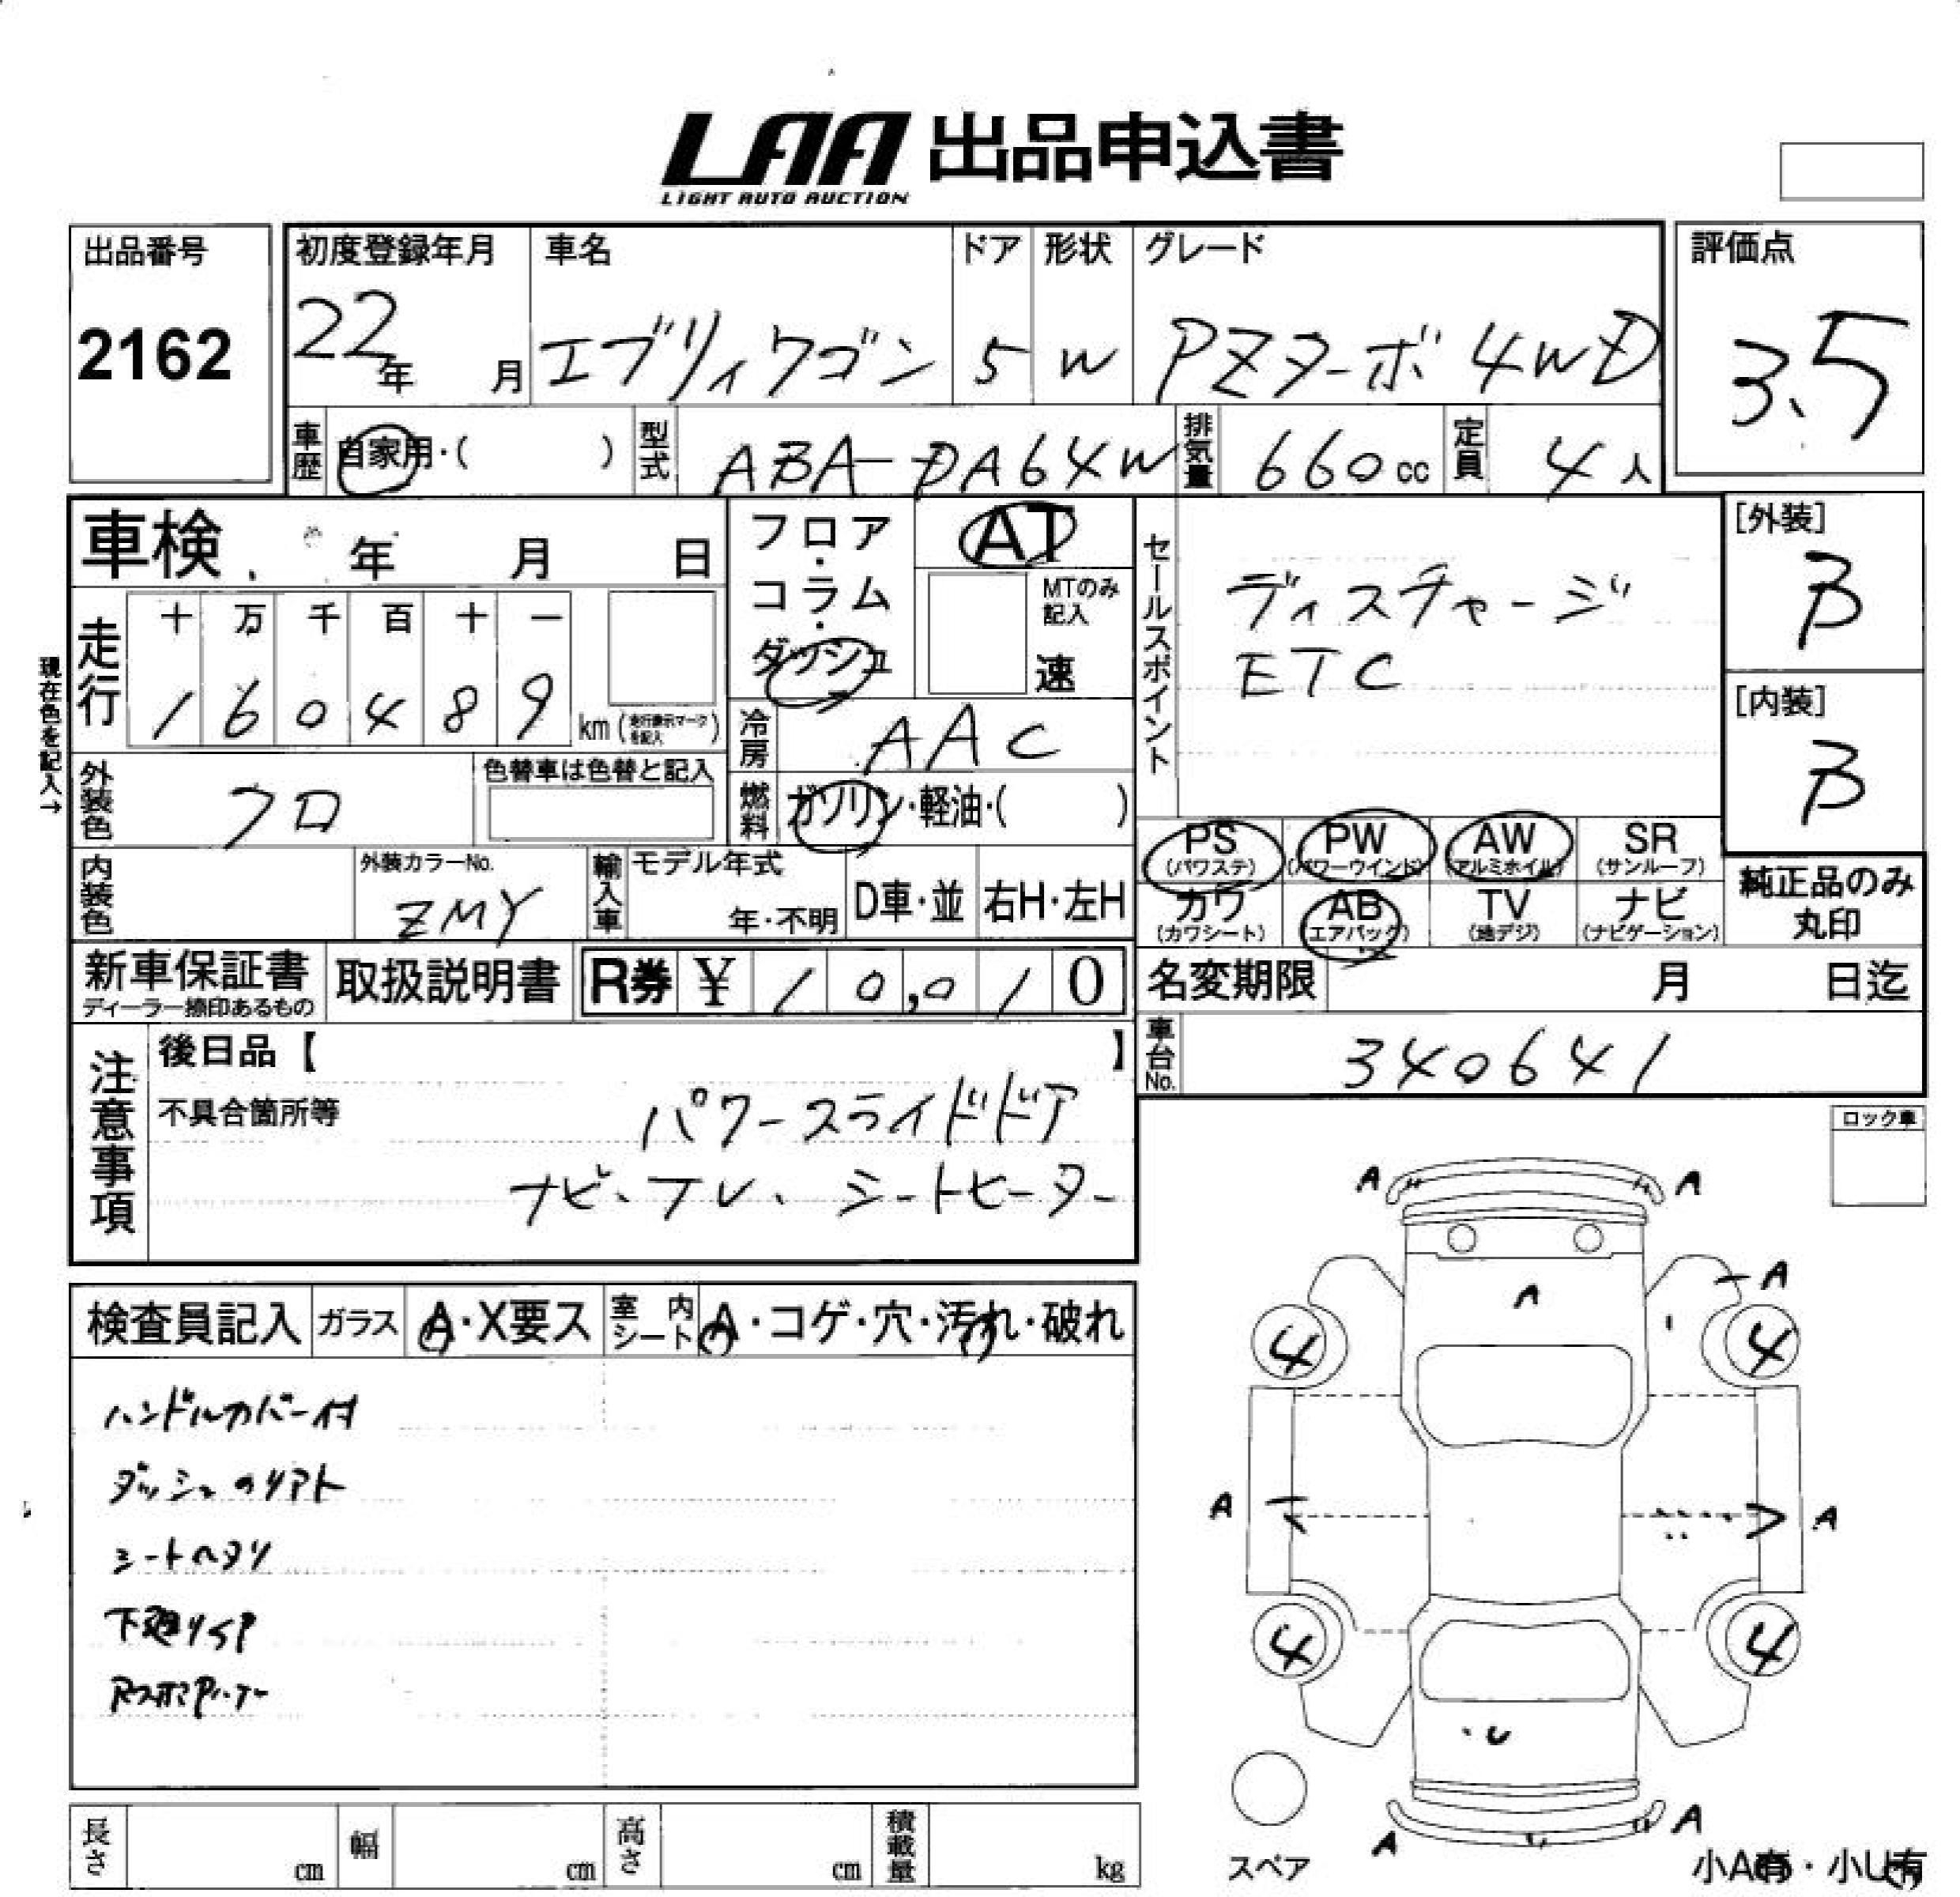 LAA 出品申込書
LIGHT AUTO AUCTION
出品番号
2162
初度登録年月
22年 月
車名
エブリィワゴン
ドア
5
形状
W
グレード
PZターボ 4WD
評価点
3.5
車歴 自家用・( )
型式 ABA-DA64W
排気量 660cc
定員 4人
車検 年 月 日
フロア・コラム・ダッシュ
AT
MTのみ記入
速
走行 十 万 千 百 十 一
1 6 0 4 8 9 km (走行表示マークを記入)
現在色を記入→
冷房 AAC
燃料 ガソリン・軽油・( )
外装色 クロ
色替車は色替と記入
内装色
外装カラーNo.
ZMY
輸入車 モデル年式
年・不明
D車・並
右H・左H
セールスポイント
ディスチャージ
ETC
[外装]
B
[内装]
B
PS (パワステ)
PW (パワーウインド)
AW (アルミホイル)
SR (サンルーフ)
カワ (カワシート)
AB (エアバック)
TV (地デジ)
ナビ (ナビゲーション)
純正品のみ丸印
新車保証書
ディーラー捺印あるもの
取扱説明書
R券 ¥10,010
名変期限 月 日迄
車台No. 340641
注意事項
後日品【 】
不具合箇所等
パワースライドドア
ナビ、フル、シートヒーター
検査員記入
ガラス A・X要ス
室内シート A・コゲ・穴・汚れ・破れ
ハンドルカバー付
ダッシュのリアト
シートヘタリ
下廻りサビ
長さ cm
幅 cm
高さ cm
積載量 kg
ロック車
A A
A
A
4 4
A A
4 4
U
A A
スペア
小A有・小U有